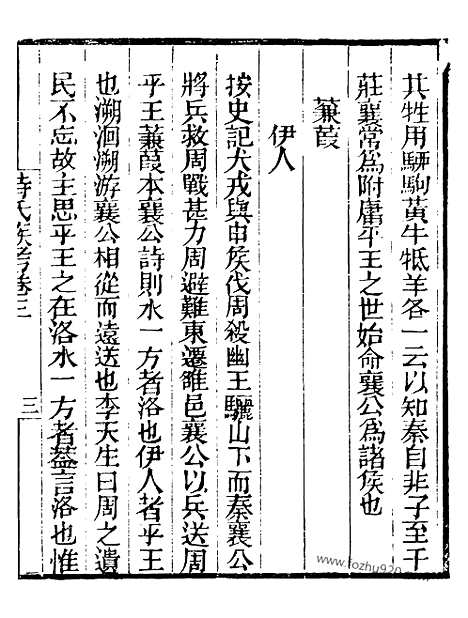 其牲用騮駒黃牛羝羊各一云以知秦自非子至千
莊襄常為附庸平王之世始命襄公為諸侯也
蒹葭
伊人
按史記犬戎與申侯伐周殺幽王驪山下而秦襄公
將兵救周戰甚力周避難東遷雒邑襄公以兵送周
平王蒹葭本襄公詩則水一方者洛也伊人者平王
也溯洄溯游襄公相從而遠送也李天生曰周之遺
民不忘故主思平王之在洛水一方者蓋言洛也惟
詩氏族考卷三
三
www.fozhu920.com